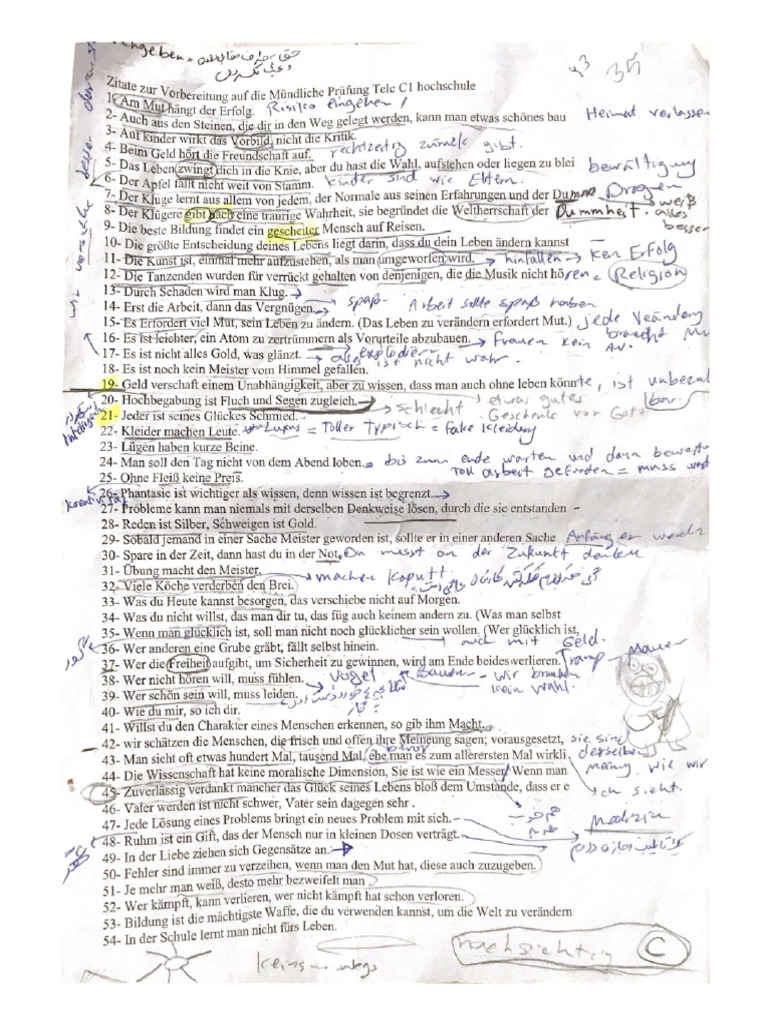 Zitate zur Vorbereitung auf die Mündliche Prüfung Telc C1 hochschule
1- Am Mut hängt der Erfolg. Risiko eingehen
2- Auch aus den Steinen, die dir in den Weg gelegt werden, kann man etwas schönes bau Heimat verlassen
3- Auf kinder wirkt das Vorbild, nicht die Kritik.
4- Beim Geld hört die Freundschaft auf. rechtzeitig zurück gibt.
5- Das Leben zwingt dich in die Knie, aber du hast die Wahl, aufstehen oder liegen zu blei bewältigung
6- Der Apfel fällt nicht weit von Stamm. Kinder sind wie Eltern.
7- Der Kluge lernt aus allem von jedem, der Normale aus seinen Erfahrungen und der Dumme Drogen
8- Der Klügere gibt nach eine traurige Wahrheit, sie begründet die Weltherrschaft der Dummheit. weiß alles besser
9- Die beste Bildung findet ein gescheiter Mensch auf Reisen.
10- Die größte Entscheidung deines Lebens liegt darin, dass du dein Leben ändern kannst
11- Die Kunst ist, einmal mehr aufzustehen, als man umgeworfen wird. hinfallen ken Erfolg
12- Die Tanzenden wurden für verrückt gehalten von denjenigen, die die Musik nicht hören = Religion
13- Durch Schaden wird man Klug.
14- Erst die Arbeit, dann das Vergnügen. spaß Arbeit sollte spaß haben
15- Es Erfordert viel Mut, sein Leben zu ändern. (Das Leben zu verändern erfordert Mut.) jede Veändung braucht Mu
16- Es ist leichter, ein Atom zu zertrümmern als Vorurteile abzubauen. Frauen kein
17- Es ist nicht alles Gold, was glänzt. alles ist nicht wahr.
18- Es ist noch kein Meister vom Himmel gefallen.
19- Geld verschaft einem Unabhängigkeit, aber zu wissen, dass man auch ohne leben könnte, ist unbezal
20- Hochbegabung ist Fluch und Segen zugleich. schlecht etwas gutes bar
21- Jeder ist seines Glückes Schmied. Geschenk von Gott
22- Kleider machen Leute. = Toller Typisch = fake kleidung
23- Lügen haben kurze Beine.
24- Man soll den Tag nicht von dem Abend loben. bis zum ende warten und dann bewert
25- Ohne Fleiß keine Preis. Toll arbeit gefunden = muss
26- Phantasie ist wichtiger als wissen, denn wissen ist begrenzt.
27- Probleme kann man niemals mit derselben Denkweise lösen, durch die sie entstanden -
28- Reden ist Silber, Schweigen ist Gold.
29- Sobald jemand in einer Sache Meister geworden ist, sollte er in einer anderen Sache Anfänger werde
30- Spare in der Zeit, dann hast du in der Not. Du musst an der Zukunft denken
31- Übung macht den Meister.
32- Viele Köche verderben den Brei. machen kaputt.
33- Was du Heute kannst besorgen, das verschiebe nicht auf Morgen.
34- Was du nicht willst, das man dir tu, das füg auch keinem andern zu. (Was man selbst
35- Wenn man glücklich ist, soll man nicht noch glücklicher sein wollen. (Wer glücklich ist,
36- Wer anderen eine Grube gräbt, fällt selbst hinein. auch mit Geld.
37- Wer die Freiheit aufgibt, um Sicherheit zu gewinnen, wird am Ende beides verlieren. Tramp Mauer
38- Wer nicht hören will, muss fühlen. Vogel wir brauchen
39- Wer schön sein will, muss leiden. kein wahl.
40- Wie du mir, so ich dir.
41- Willst du den Charakter eines Menschen erkennen, so gib ihm Macht.
42- wir schätzen die Menschen, die frisch und offen ihre Meineung sagen; vorausgesetzt, sie sind
43- Man sieht oft etwas hundert Mal, tausend Mal, ehe man es zum allerersten Mal wirkli bevor derselben
44- Die Wissenschaft hat keine moralische Dimension, Sie ist wie ein Messer/ Wenn man meinung wie wir
45- Zuverlässig verdankt mancher das Glück seines Lebens bloß dem Umstande, dass er e
46- Vater werden ist nicht schwer, Vater sein dagegen sehr .
47- Jede Lösung eines Problems bringt ein neues Problem mit sich. Medizin
48- Ruhm ist ein Gift, das der Mensch nur in kleinen Dosen verträgt.
49- In der Liebe ziehen sich Gegensätze an.
50- Fehler sind immer zu verzeihen, wenn man den Mut hat, diese auch zuzugeben.
51- Je mehr man weiß, desto mehr bezweifelt man
52- Wer kämpft, kann verlieren, wer nicht kämpft hat schon verloren.
53- Bildung ist die mächtigste Waffe, die du verwenden kannst, um die Welt zu verändern
54- In der Schule lernt man nicht fürs Leben.
nachsichtig C